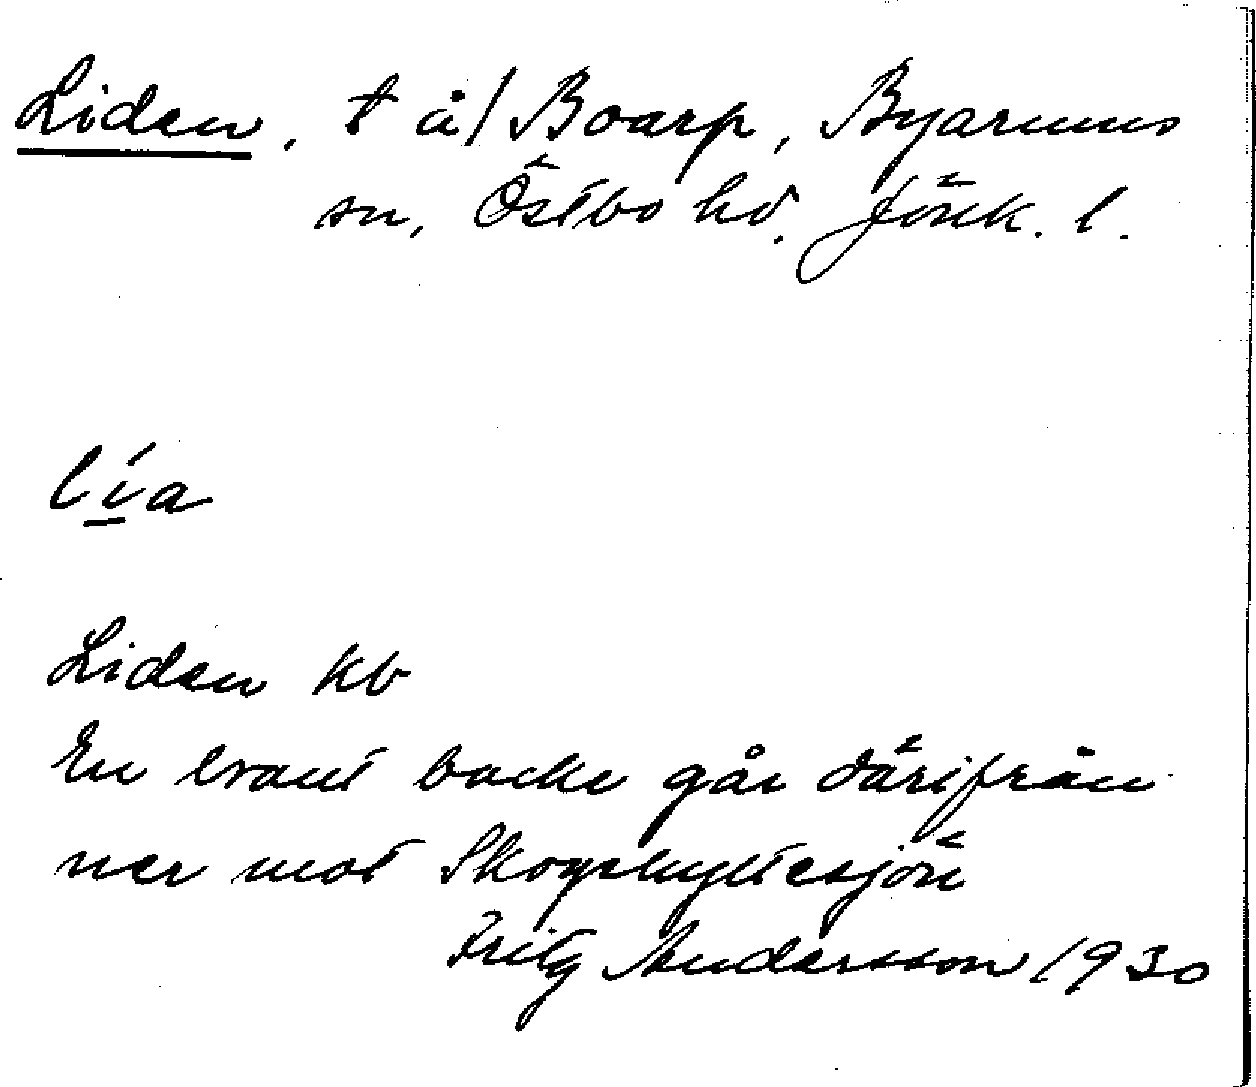 Liden, t å/ Boarp, Byarums
sn, Östbo hd. Jönk. l.
lía
Liden kb
En brant backe går därifrån
ner mot Skogshyltesjön
Fritz Andersson 1930